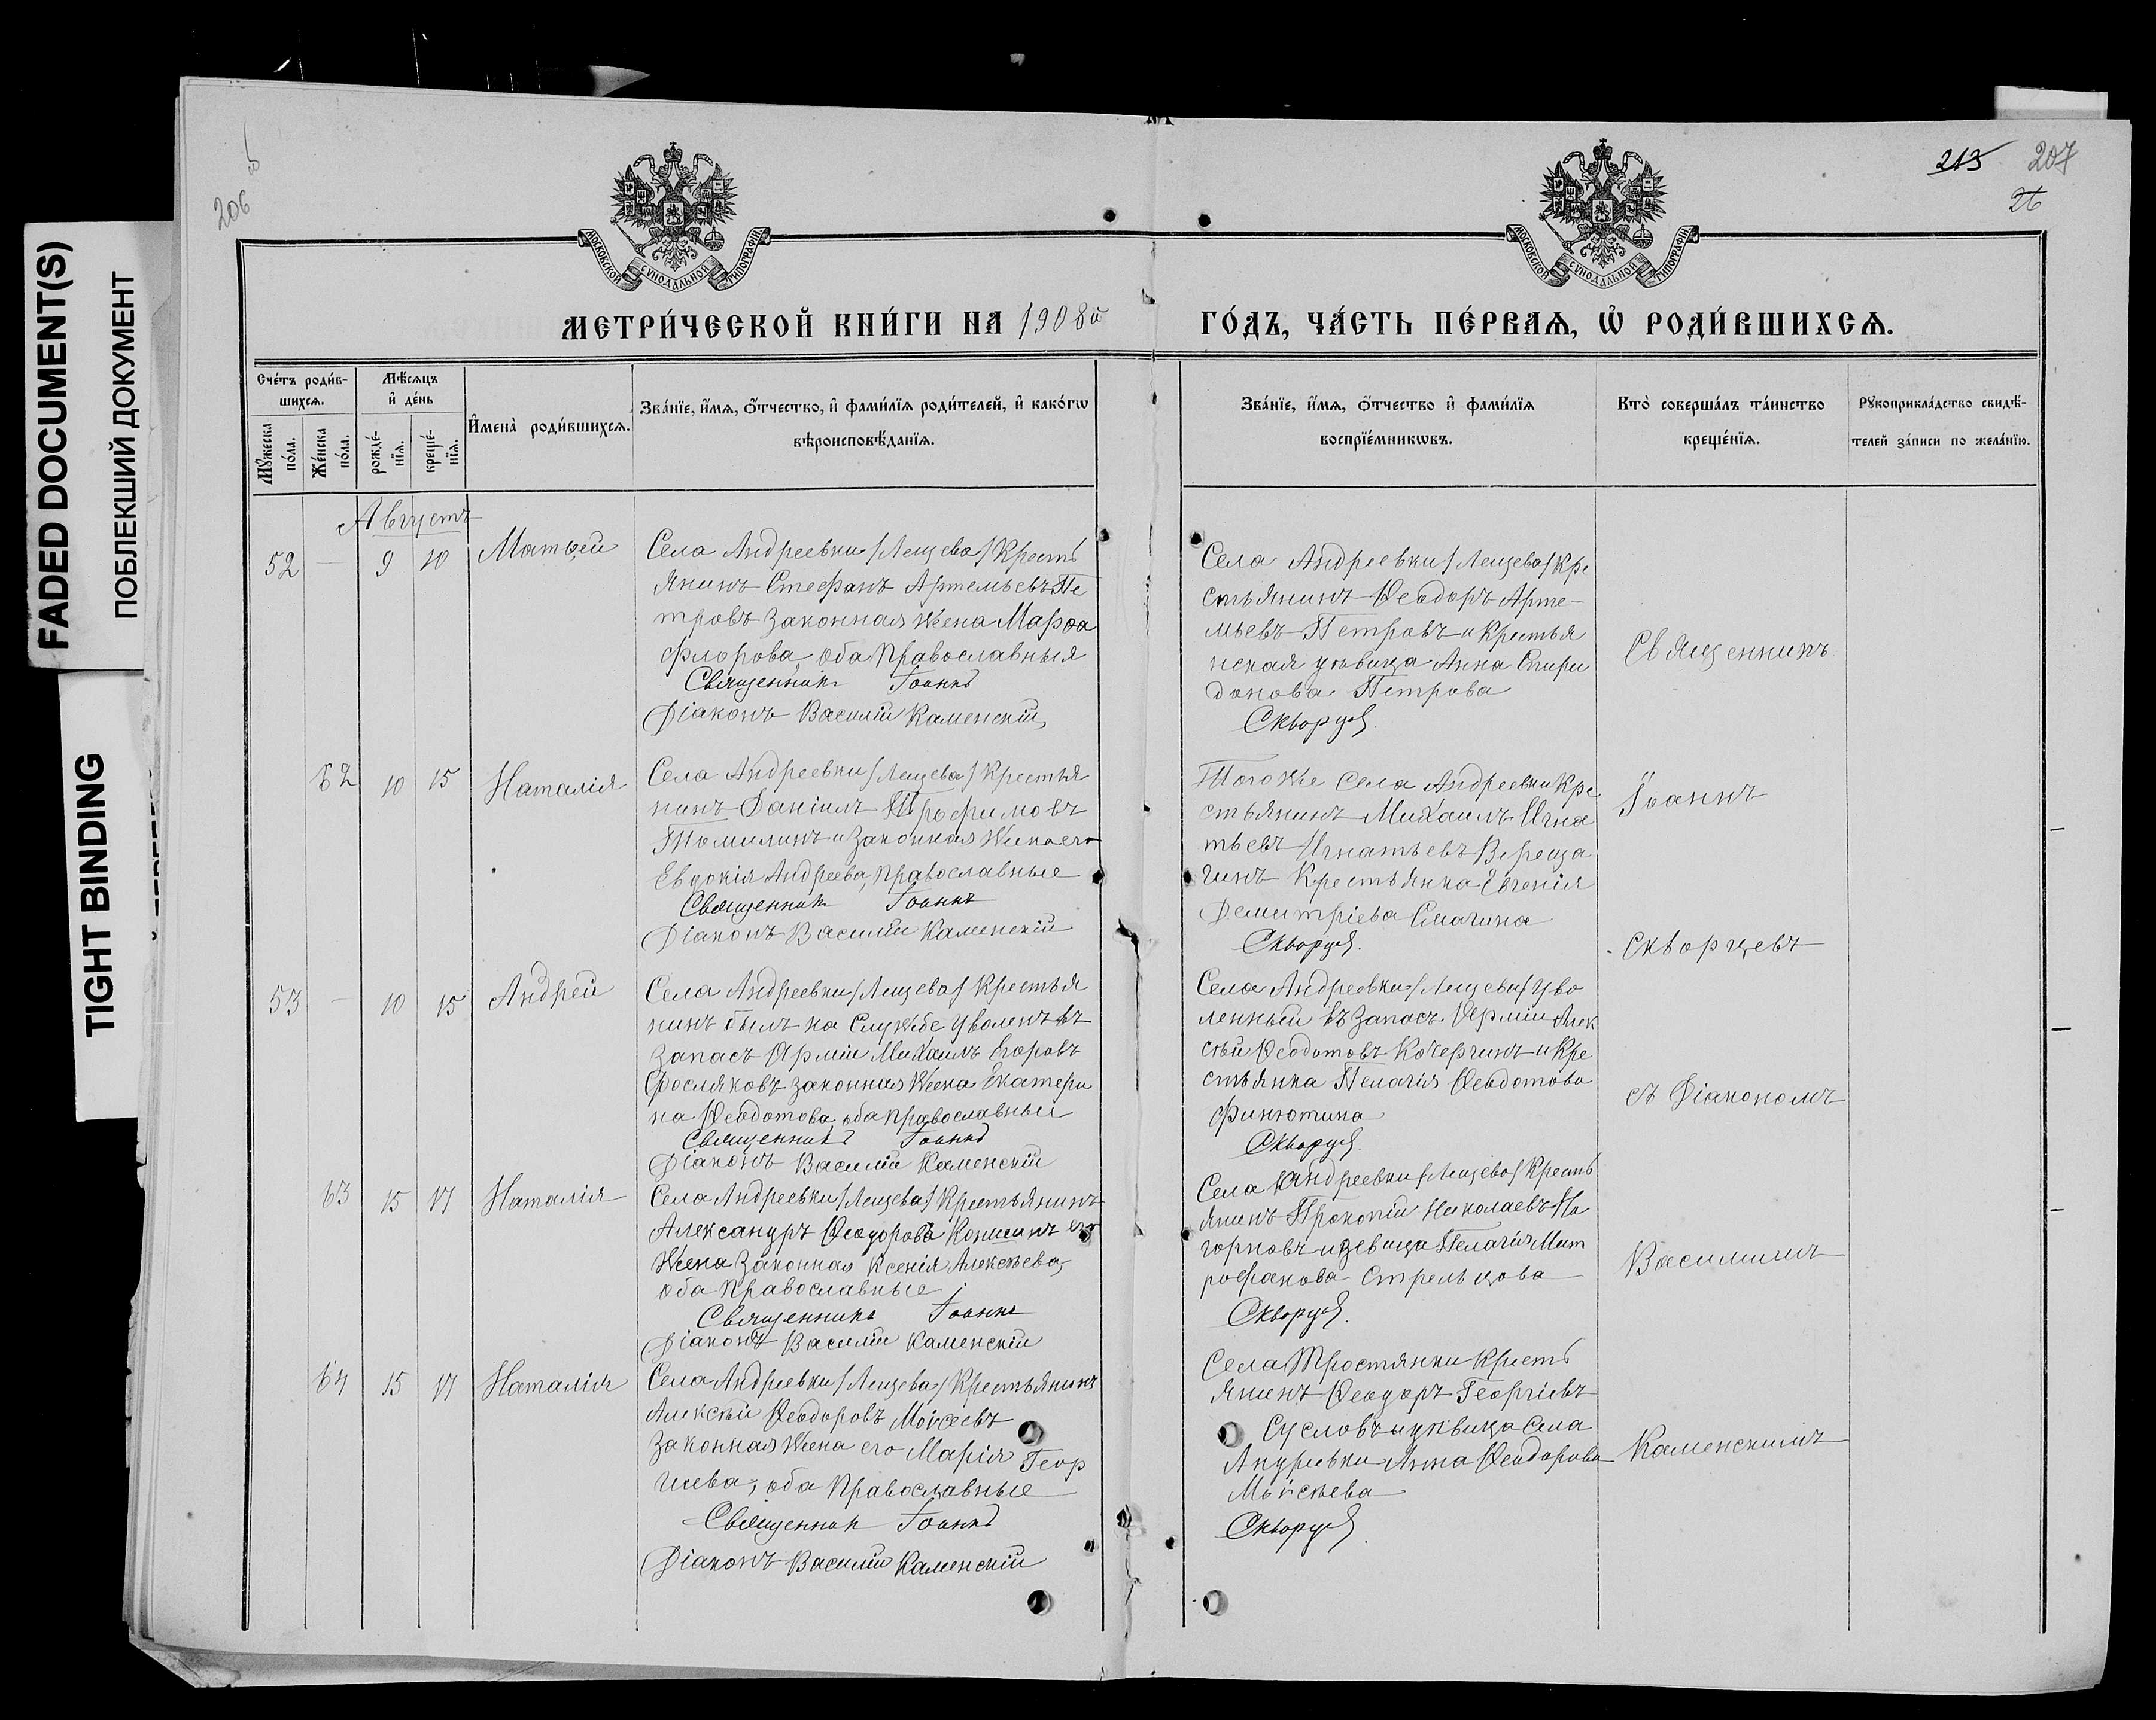 FADED DOCUMENT(S)
ПОБЛЕКШИЙ ДОКУМЕНТ
TIGHT BINDING
206
213 207
МОСКОВСКОЙ СѴНОДАЛЬНОЙ ТИПОГРАФІИ
МОСКОВСКОЙ СѴНОДАЛЬНОЙ ТИПОГРАФІИ
МЕТРИ́ЧЕСКОЙ КНИ́ГИ НА 1908й
ГО́ДЪ, ЧА́СТЬ ПЕ́РВАѦ, Ѽ РОДИ́ВШИХСѦ.
Сче́тъ роди́в-
шихсѧ.
Мꙋ́жеска по́ла.
Же́нска по́ла.
Мѣ́сѧцъ
и҆ де́нь
рожде́-
нїѧ.
креще́-
нїѧ.
И҆мена̀ роди́вшихсѧ.
Зва́нїе, и҆́мѧ, ѻ҆́тчество, и҆ фами́лїѧ роди́телей, и҆ како́гѡ
вѣроисповѣ́данїѧ.
Зва́нїе, и҆́мѧ, ѻ҆́тчество и҆ фами́лїѧ
воспрїе́мникѡвъ.
Кто̀ соверша́лъ та́инство
креще́нїѧ.
Рꙋкоприкла́дство свидѣ́-
телей за́писи по жела́нїю.
Августъ
52 — 9 10 Матѳей
Села Андреевки /Лещева/ Кресть
янинъ Стефанъ Артемьевъ Пе
тровъ законная жена Марѳа
Флорова, оба православныя
Священникъ Іоаннъ
Діаконъ Василій Каменскій,
Села Андреевки /Лещева/ Кре
стьянинъ Ѳеодоръ Арте-
мьевъ Петровъ и крестья
нская дѣвица Анна Спири
донова Петрова
Скворцев.
62 10 15 Наталія
Села Андреевки /Лещева/ Крестья
нинъ Даніилъ Трофимовъ
Томилинъ и законная жена его
Евдокія Андреева, православные
Священник Іоаннъ
Діаконъ Василій Каменскій
Того же села Андреевки Кре
стьянинъ Михаилъ Игна
тьевъ Игнатьевъ Вереща
гинъ Крестьянка Евгенія
Демитріева Смагина
Скворцев.
53 — 10 15 Андрей
Села Андреевки /Лещева/ Крестья
нинъ былъ на службе уволенъ въ
запасъ Арміи Михаилъ Егоровъ
законная жена Екатери
на Ѳеодотова, оба православный
Священникъ Іоаннъ
Діаконъ Василій Каменскій
Села Андреевки /Лещева/ Уво
ленный въ запасъ Арміи Алек
сѣй Ѳеодотовъ Кочергинъ и Кре
стьянка Пелагія Ѳеодотова
Финютина
Скворцев.
63 15 17 Наталія
Села Андреевки /Лещева/ Крестьянинъ
Александръ Ѳеодоровъ его
жена законная Ксенія Алексѣева,
оба православные
Священникъ Іоаннъ
Діаконъ Василій Каменскій
Села Андреевки /Лещева/ Кресть
янинъ Прокопій Николаевъ На
горновъ и дѣвица Пелагія Мит
рофанова Стрельцова
Скворцев.
64 15 17 Наталія
Села Андреевки /Лещева/ Крестьянинъ
Алексѣй Ѳеодоровъ Моисеевъ
законная жена его Марія Геор
гиева, оба Православные
Священник Іоаннъ
Діаконъ Василій Каменскій
Села Тростянки Кресть
янинъ Ѳеодоръ Георгіевъ
Сусловъ и дѣвица села
Андреевки Анна Ѳеодорова
Моисѣева
Скворцев.
Священникъ
Іоаннъ
Скворцевъ
съ Діакономъ
Василіимъ
Каменскимъ